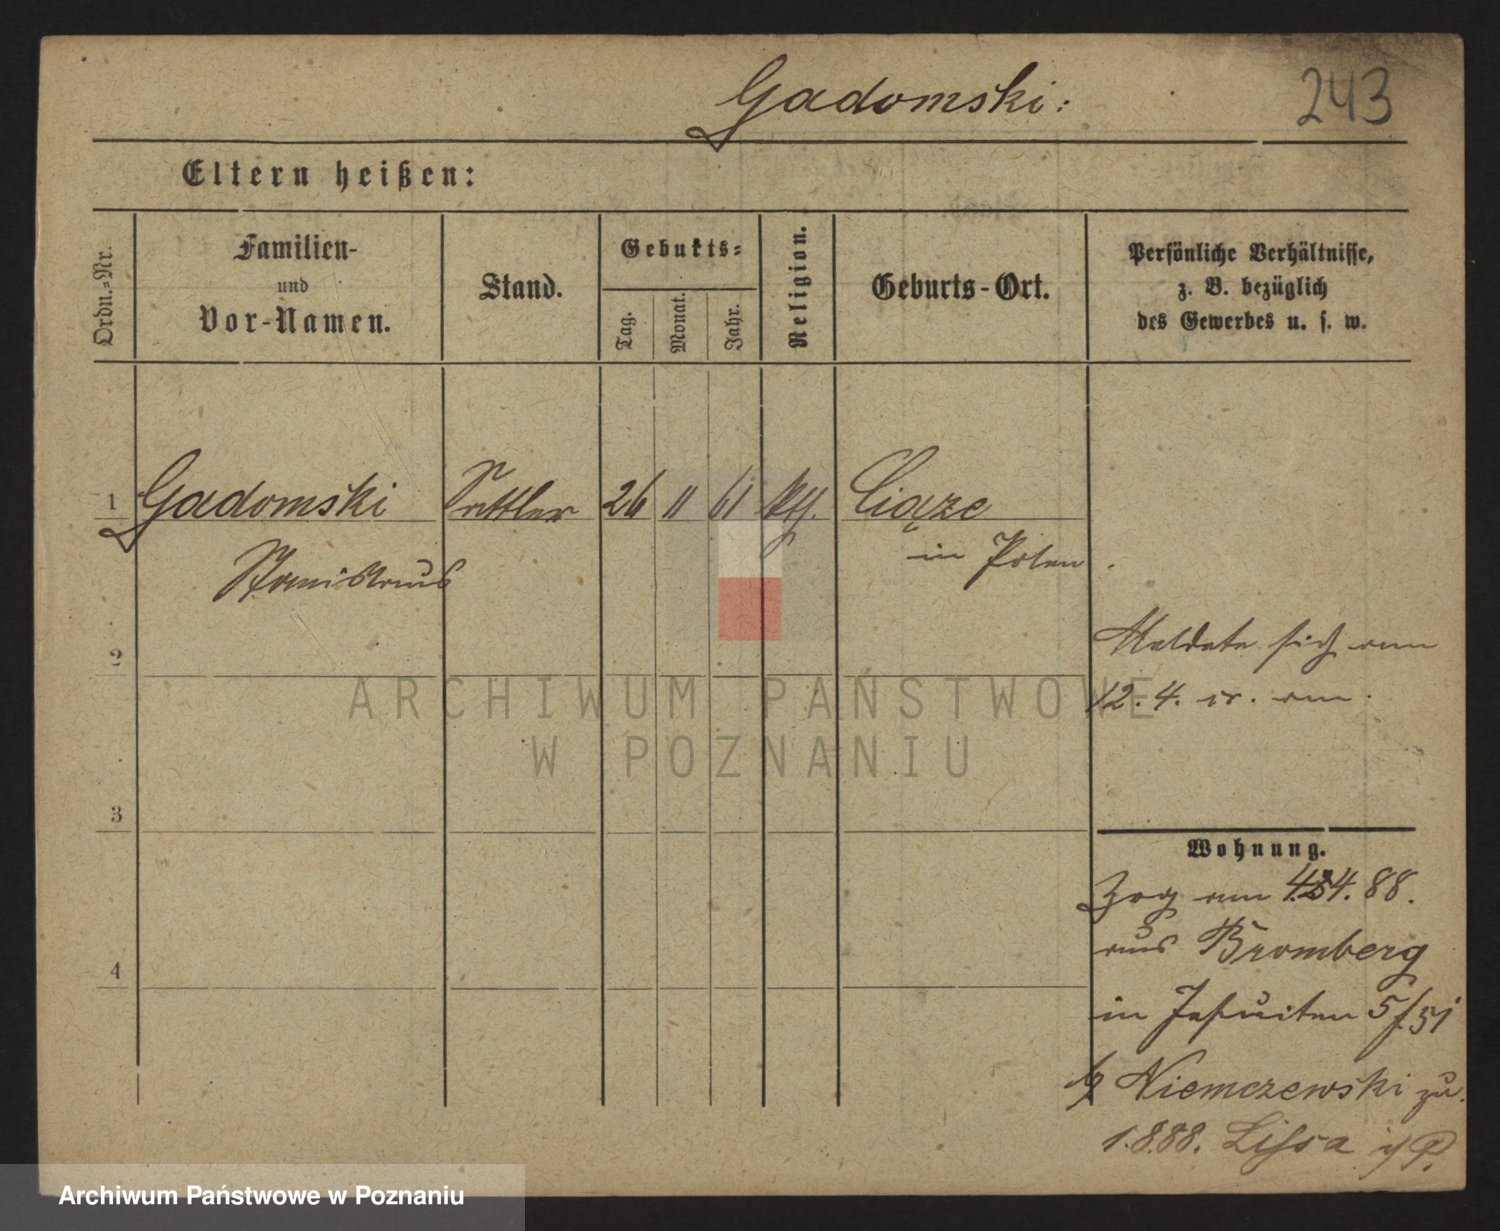 Gadomski:
243
Eltern heißen:
Ordn.-Nr.
Familien-
und
Vor-Namen.
Stand.
Geburts-
Tag.
Monat.
Jahr.
Religion.
Geburts-Ort.
Persönliche Verhältnisse,
z. B. bezüglich
des Gewerbes u. s. w.
1 Gadomski Sattler 26 11 61 kth. Ciąze
Stanislaus in Polen
2
Meldete sich am
12. 4. cr. an.
3
Wohnung.
Zog am 4. 4. 88.
aus Bromberg
4
in Jesuiten 5/51
b/ Niemczewski zu.
1.8.88. Lissa i/P.
ARCHIWUM PAŃSTWOWE
W POZNANIU
Archiwum Państwowe w Poznaniu